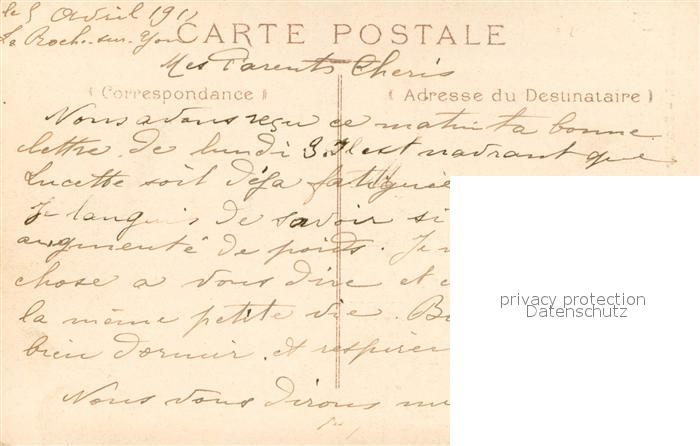 le 5 Avril 191
La Roche-sur-Yon
CARTE POSTALE
Mes Parents Cheris
Correspondance
Adresse du Destinataire
Nous avons reçu ce matin ta bonne
lettre de lundi 3. Il est navrant que
Lucette soit déja fatiguée
Je languis de savoir si
augmenté de poids. Je
chose a vous dire et
la même petite vie.
bien dormir et respirer
Nous vous dirons
privacy protection
Datenschutz